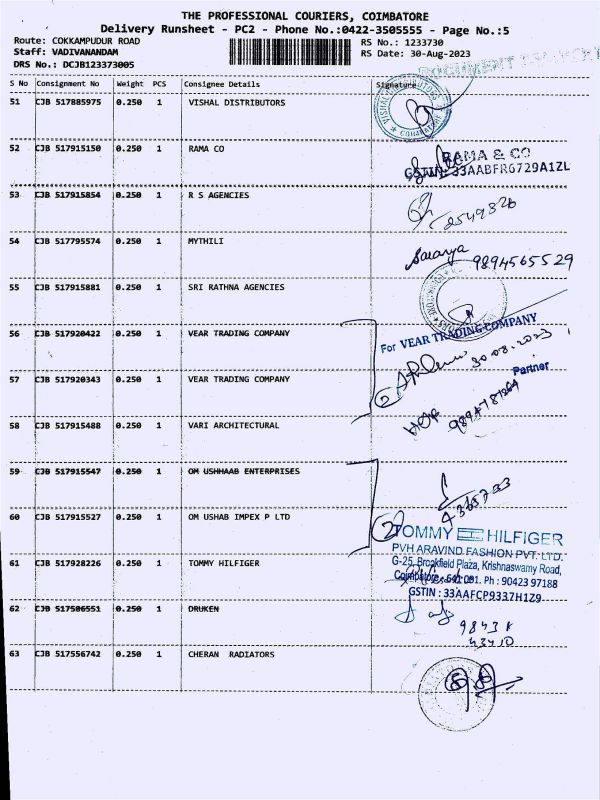 THE PROFESSIONAL COURIERS, COIMBATORE
Delivery Runsheet - PC2 - Phone No.:0422-3505555 - Page No.:5
Route: COKKAMPUDUR ROAD RS No.: 1233730
Staff: VADIVANANDAM RS Date: 30-Aug-2023
DRS No.: DCJB123373005
S No Consignment No Weight PCS Consignee Details Signature
51 CJB 517885975 0.250 1 VISHAL DISTRIBUTORS
52 CJB 517915150 0.250 1 RAMA CO
RAMA & CO
GSTIN: 33AABFR6729A1ZL
53 CJB 517915854 0.250 1 R S AGENCIES
54 CJB 517795574 0.250 1 MYTHILI
Saranya 9894565529
55 CJB 517915881 0.250 1 SRI RATHNA AGENCIES
56 CJB 517920422 0.250 1 VEAR TRADING COMPANY
For VEAR TRADING COMPANY
30.08.2023
Partner
57 CJB 517920343 0.250 1 VEAR TRADING COMPANY
2
58 CJB 517915488 0.250 1 VARI ARCHITECTURAL
59 CJB 517915547 0.250 1 OM USHHAAB ENTERPRISES
60 CJB 517915527 0.250 1 OM USHAB IMPEX P LTD
2
TOMMY HILFIGER
PVH ARAVIND FASHION PVT. LTD.
61 CJB 517928226 0.250 1 TOMMY HILFIGER
G-25, Brookfield Plaza, Krishnaswamy Road,
Coimbatore - 641 001. Ph : 90423 97188
GSTIN : 33AAFCP9337H1Z9
62 CJB 517506551 0.250 1 DRUKEN
63 CJB 517556742 0.250 1 CHERAN RADIATORS